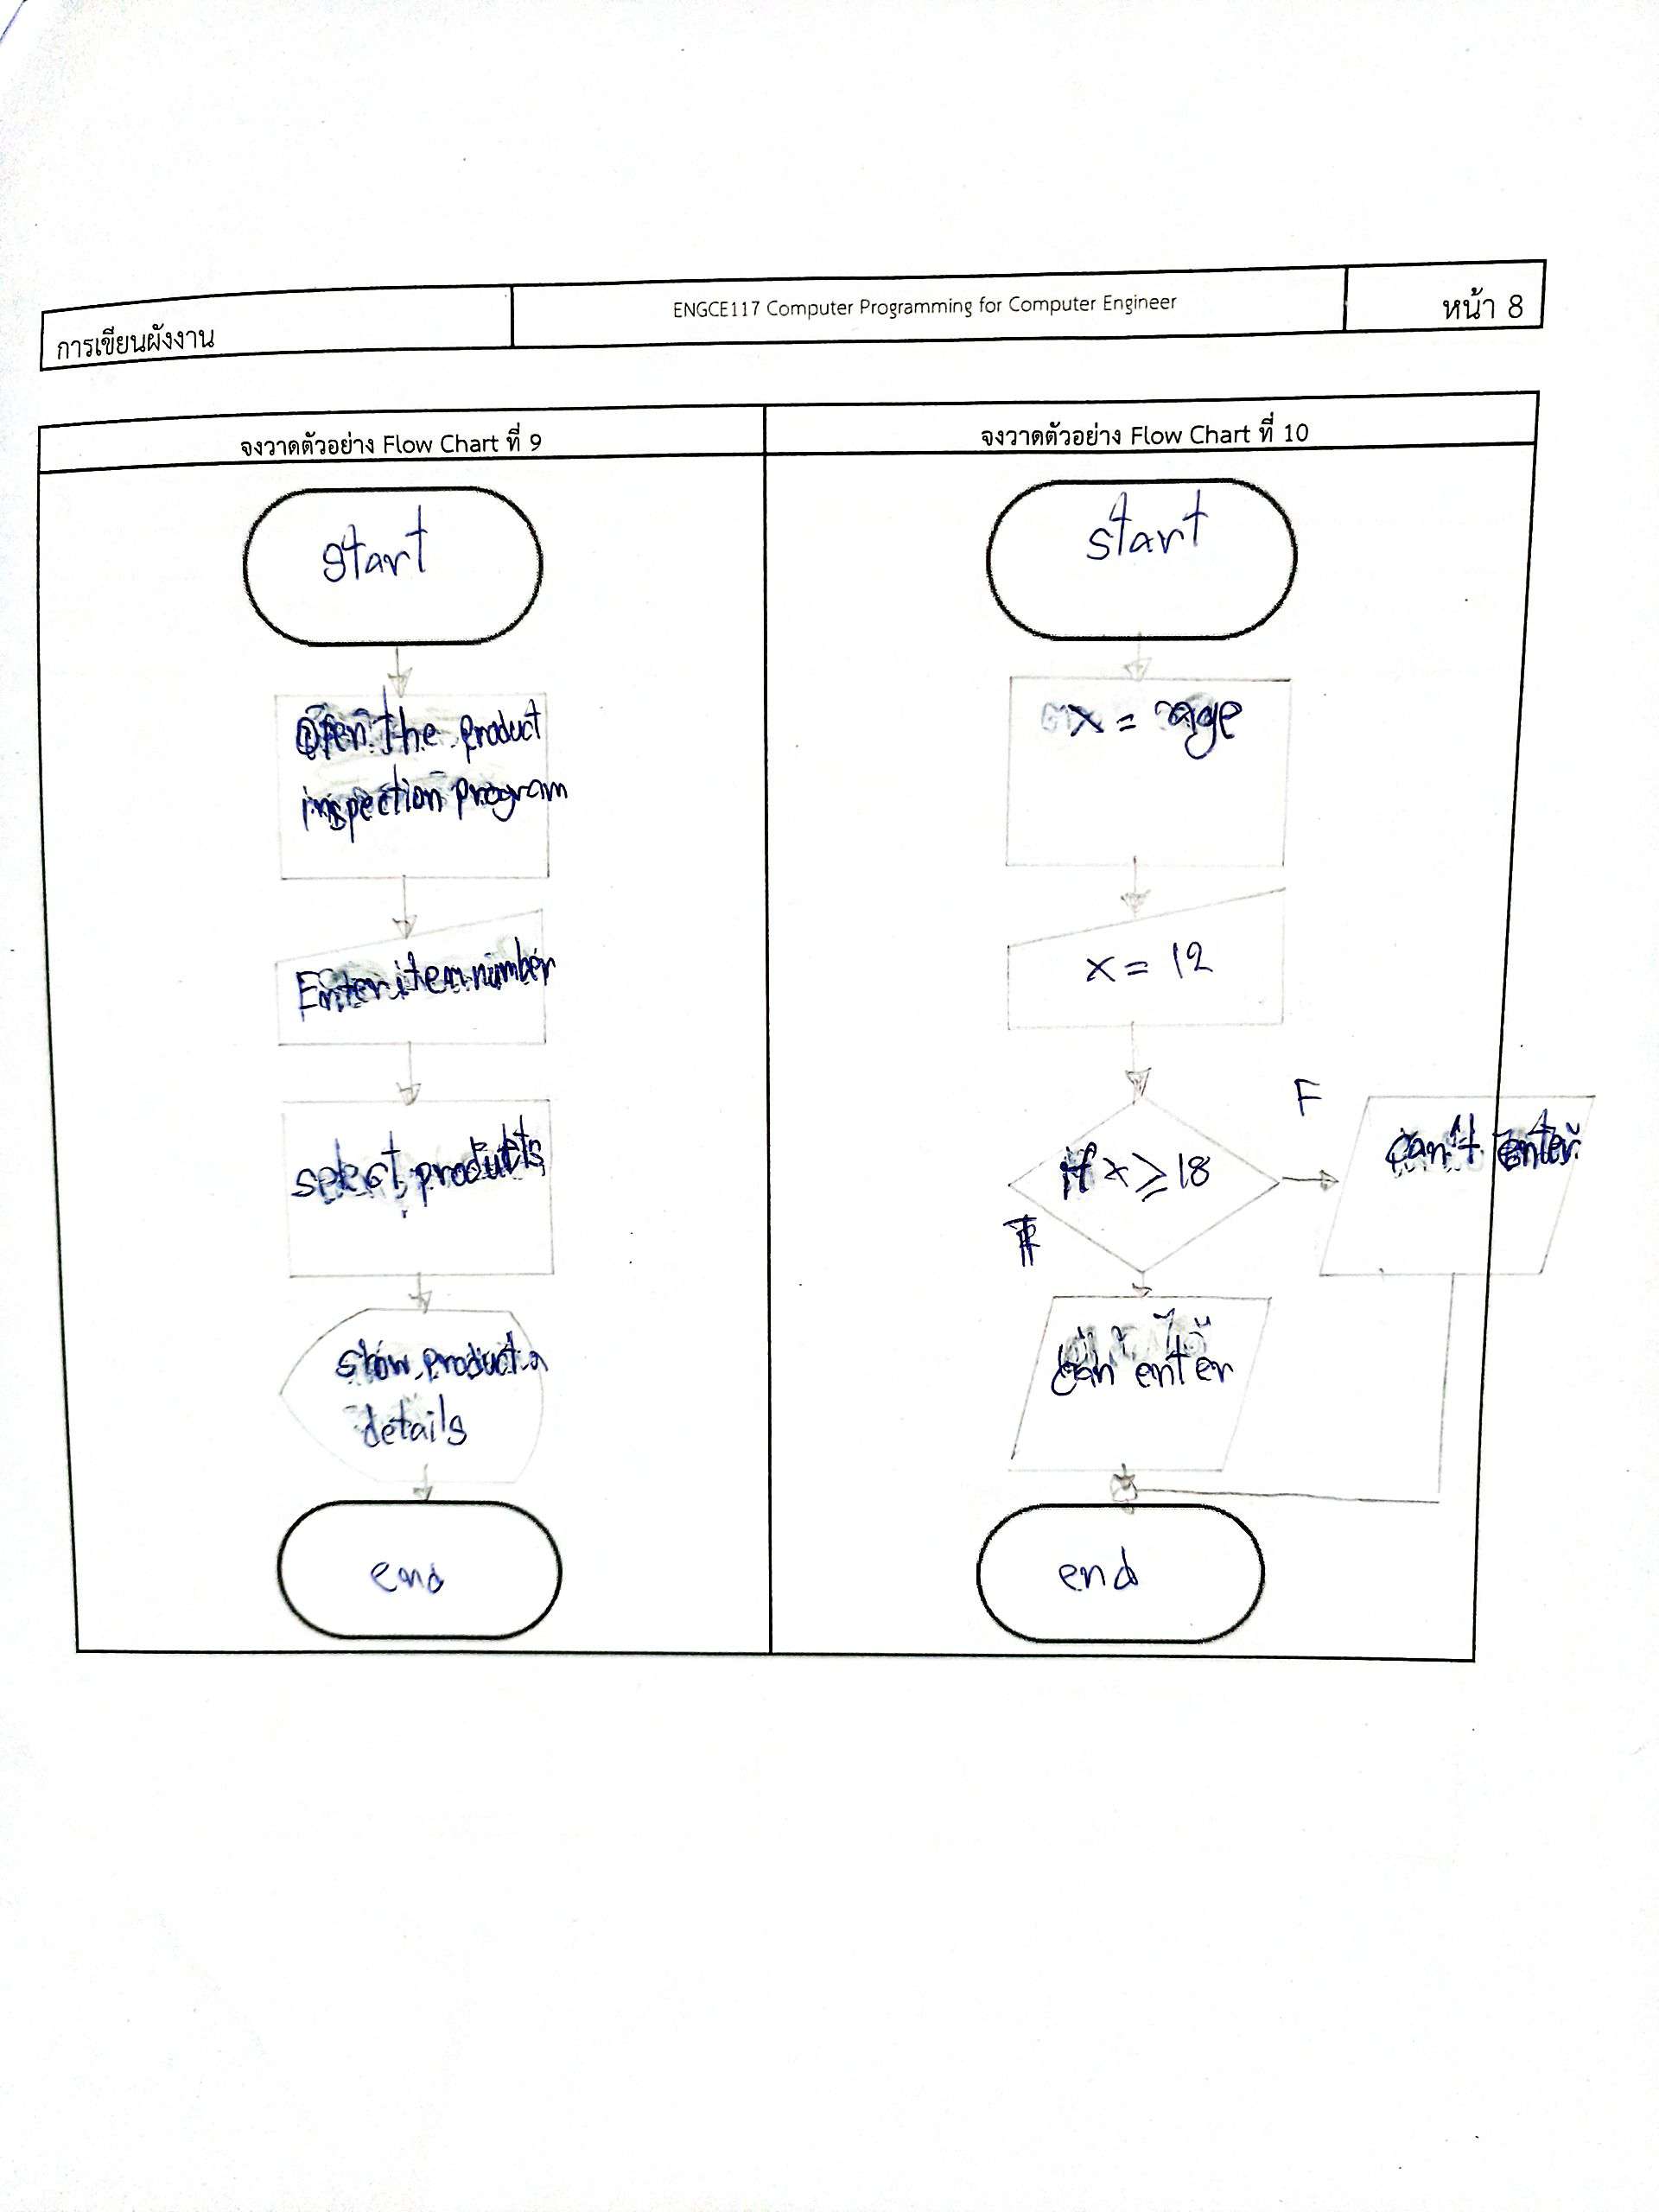 การเขียนผังงาน
ENGCE117 Computer Programming for Computer Engineer
หน้า 8
จงวาดตัวอย่าง Flow Chart ที่ 9
start
Open the product
inspection program
Enter item number
select products
show product
details
end
จงวาดตัวอย่าง Flow Chart ที่ 10
start
x = age
x = 12
if x ≥ 18
F
can't enter
T
can enter
end